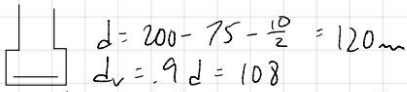 d = 200 - 75 - 10/2 = 120mm
dv = .9 d = 108